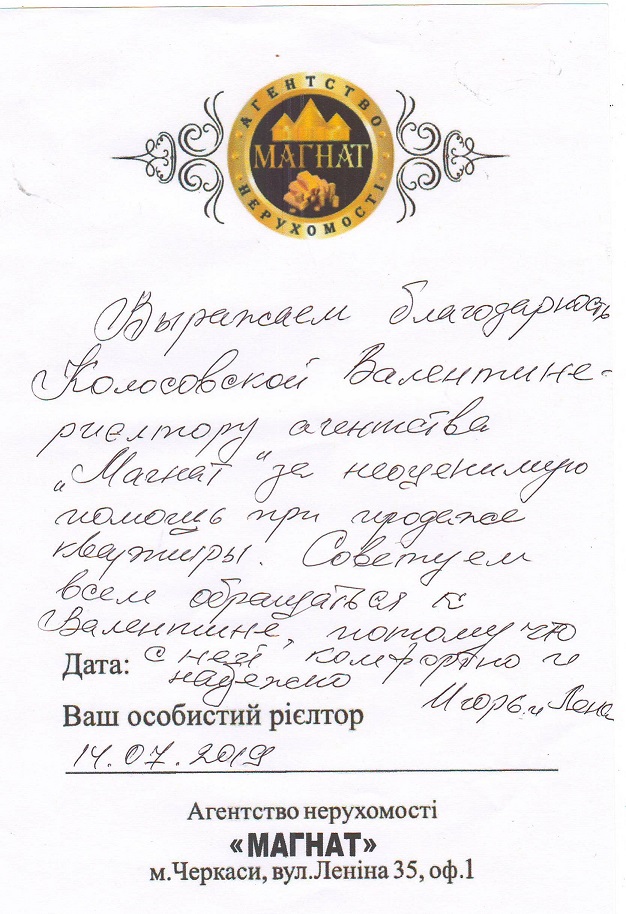 АГЕНТСТВО
МАГНАТ
НЕРУХОМОСТІ
Выражаем благодарность
Колосовской Валентине-
риелтору агентства
„Магнат" за неоценимую
помощь при продаже
квартиры. Советуем
всем обращаться к
Валентине, потому что
Дата: с ней комфортно и
надежно
Игорь и Лена
Ваш особистий рієлтор
14.07.2019
Агентство нерухомості
«МАГНАТ»
м.Черкаси, вул.Леніна 35, оф.1